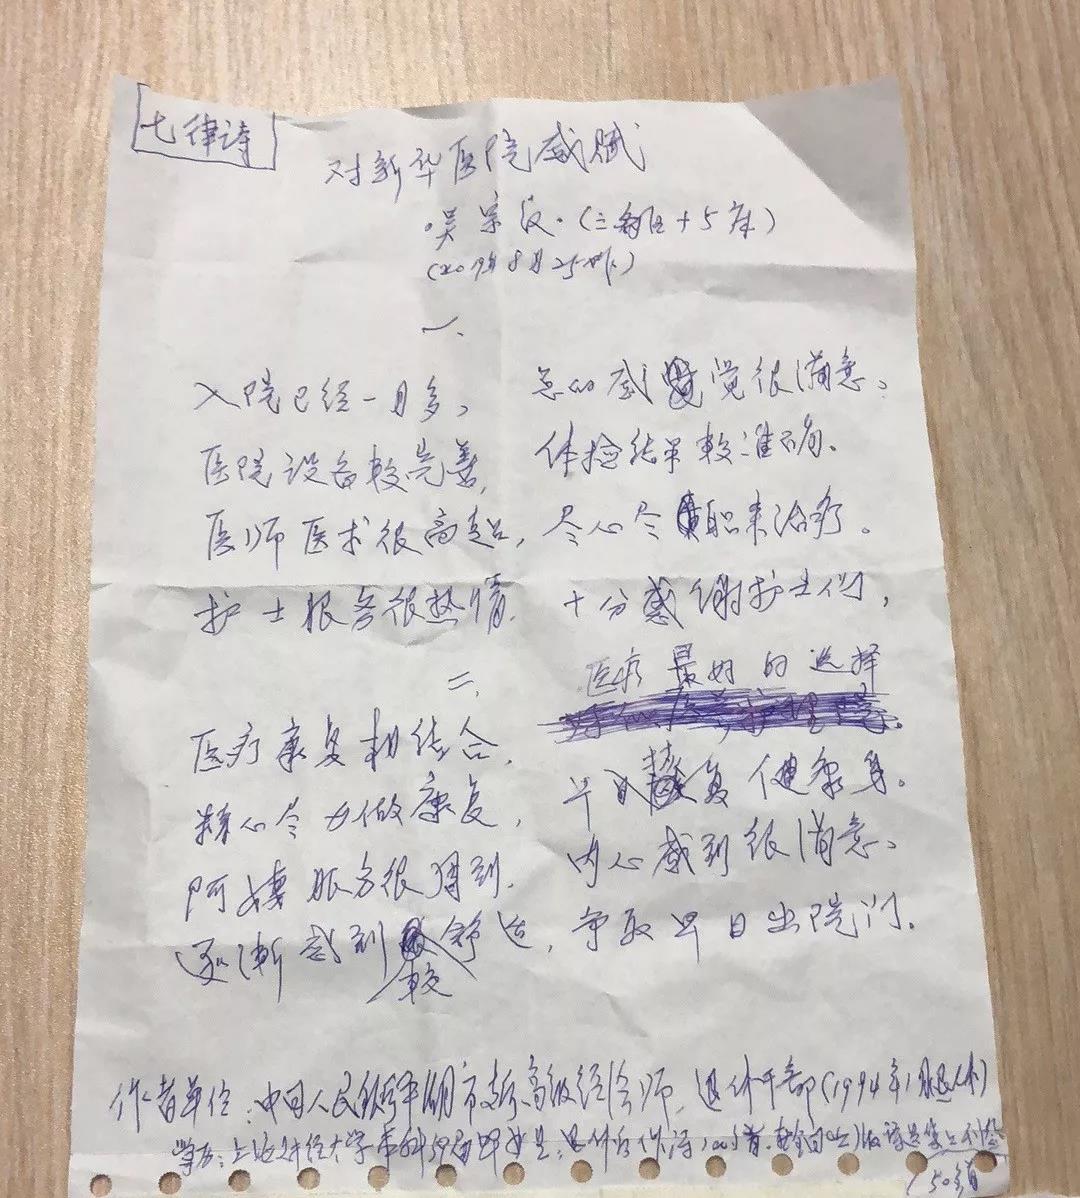 七律诗
对新华医院感赋
吴宗汉·(三病区+5床)
(2019年8月25日作)
一、
入院已经一月多, 总的感觉很满意。
医院设备较完善, 体检结果较准确。
医师医术很高超, 尽心尽职来治疗。
护士服务很热情, 十分感谢护士们,
二、
医疗康复相结合, 医疗最好的选择
精心尽力做康复, 早日恢复健康身。
阿姨服务很周到, 内心感到很满意。
逐渐感到较舒适, 争取早日出院门。
作者单位:中国人民银行 市 高级经济师, 退休干部(1994年1月退休)
学历:上海财经大学本科59届毕业生;退休后作诗 首
50首